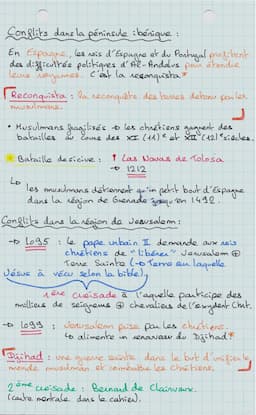 Conflits dans la péninsule ibérique :
En Espagne, les rois d'Espagne et du Portugal profitent
des difficultés politiques d'Al-Andalus pour étendre
leurs royaumes. C'est la reconquista*
Reconquista : la reconquête des terres detenu par les
musulmans.
• Musulmans fragilisés → les chrétiens gagnent des
batailles au cours des XI (11)e et XIIe (12)e siècles.
Bataille décisive : ! Las Navas de Tolosa
→ 1212
↳ les musulmans détiennent qu'un petit bout d'Espagne
dans la région de Grenade jusqu'en 1492.
Conflits dans la région de Jerusalem :
→ 1095 : le pape urbain II demande aux rois
chrétiens de "libérer" Jerusalem ⊕
Terre Sainte (→ Terre en laquelle
Jésus à vécu selon la bible).
1ère croisade à laquelle participe des
milliers de seigneurs ⊕ chevaliers de l'
→ 1099 : Jerusalem prise par les chrétiens.
↳ alimente un renouveau du Djihad*
Djihad : une guerre sainte dans le but d'unifier le
monde musulman et combattre les Chrétiens.
2ème croisade : Bernard de Clairvaux.
(carte mentale dans le cahier).